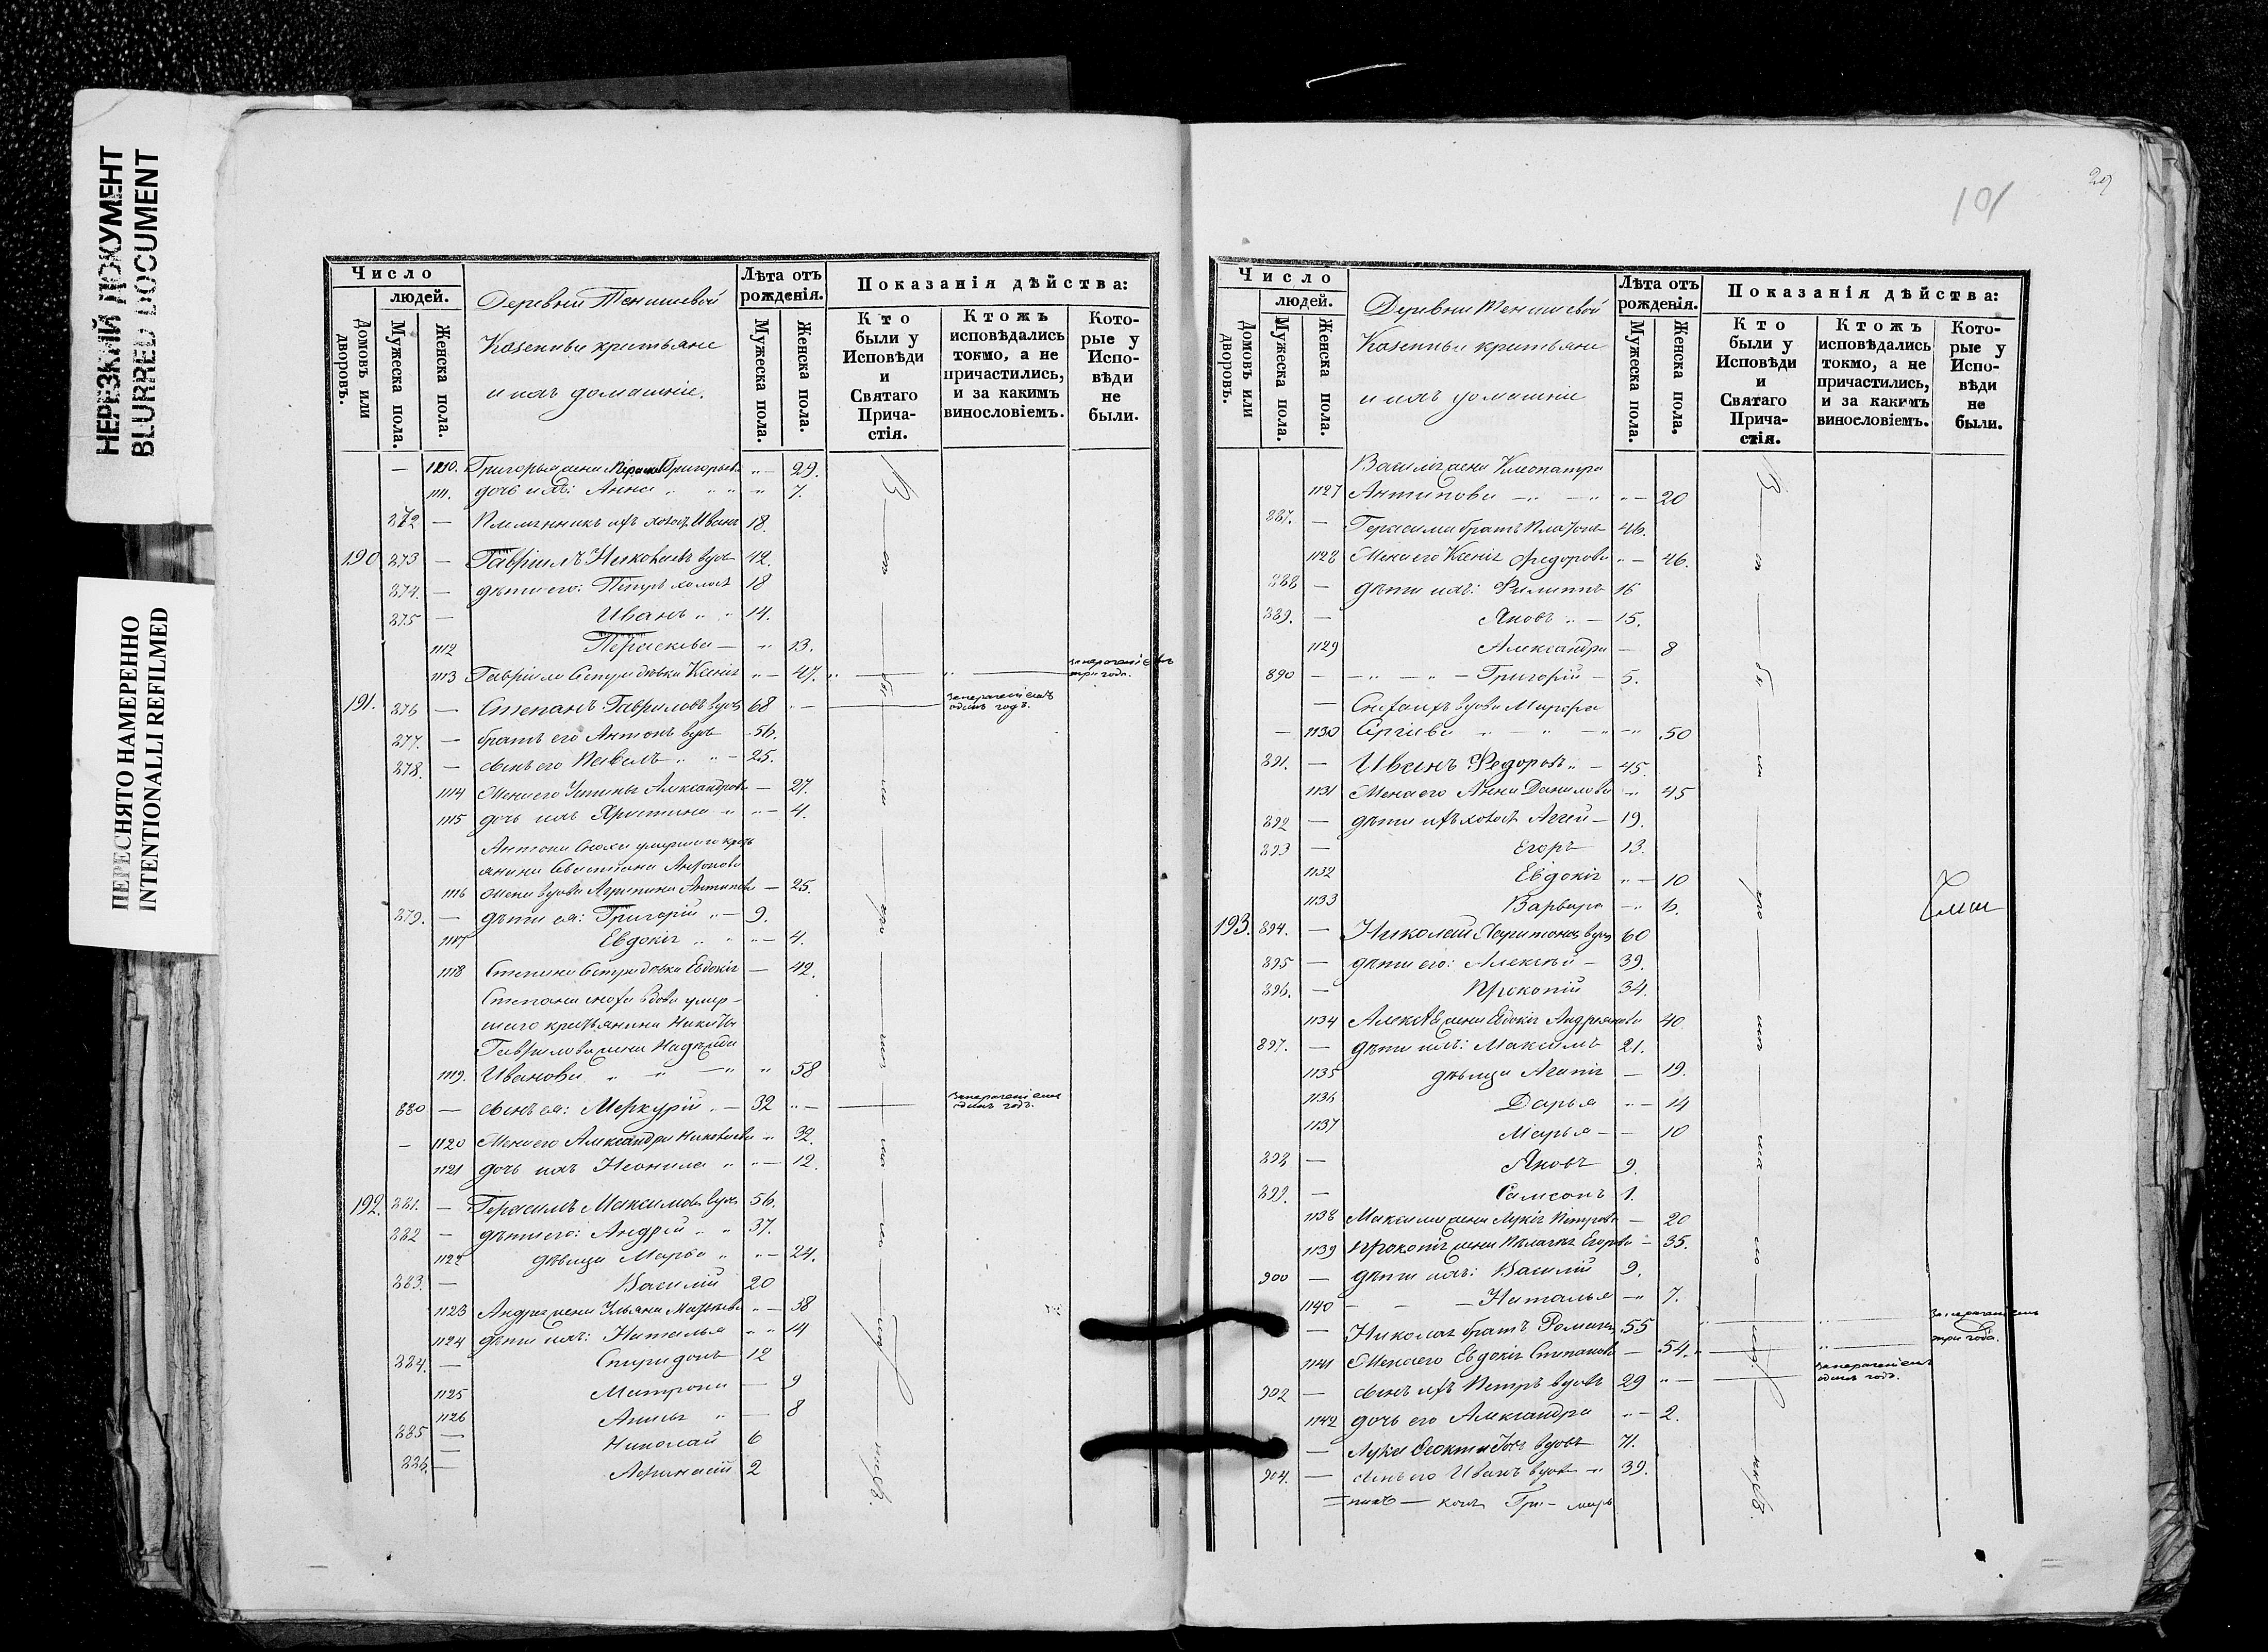 НЕРЕЗКИЙ ДОКУМЕНТ
BLURRED DOCUMENT
ПЕРЕСНЯТО НАМЕРЕННО
INTENTIONALLI REFILMED
Число
людей.
Домовъ или дворовъ.
Мужеска пола.
Женска пола.
Деревни Тенишевой
Казенныи
и ихъ домашніе.
Лѣта отъ рожденія.
Мужеска пола.
Женска пола.
Показанія дѣйства:
Кто были у Исповѣди и Святаго Прича-стія.
Ктожъ исповѣдались токмо, а не причастились, и за какимъ винословіемъ.
Кото-рые у Испо-вѣди не были.
— 1110. Григорья жена Григорьева „ — 29.
1111. дочь ихъ: Анна „ „ „ 7.
872 — Племянникъ ихъ холост. Иванъ 18.
190 873 — Гавріилъ Николаевъ вдовъ 42.
874. — дѣти его: Петръ холост 18
875 — Иванъ „ „ 14.
1112 Параскева — „ 13.
1113 Гавріила сестра дѣвка Ксенія „ — 47. „ — „ — за нерачені емъ три года.
191. 876 — Степанъ Гавриловъ вдовъ 68 „ — — за нерачені емъ одинъ годъ.
877. — братъ его Антонъ вдовъ 56.
878. — сынъ его Павелъ „ „ — 25.
1114 Жена его Устинья Александрова — 27.
1115 дочь ихъ Христина „ „ — 4.
Антона сноха умершаго кресть
янина Севастьяна Антонова
1116 жена вдова Агрипина Антипова — 25.
879. — дѣти ея: Григорій „ — 9.
1117 Евдокія „ „ „ — 4.
1118 Степана сестра дѣвка Евдокія — 42.
Степана сноха вдова умер-
шаго крестьянина Никиты
Гаврилова жена Надежда
1119. Иванова „ „ — „ „ 58
880 — сынъ ея: Меркурій „ — 32 „ — — за нерачені емъ одинъ годъ.
— 1120 Жена его Александра Николаева „ 32.
1121 дочь ихъ Неонила „ „ — 12.
192. 881. — Герасимъ Максимовъ вдовъ 56.
882 — дѣти его: Андрей „ „ 37.
1122 дѣвица Марѳа „ „ — 24.
883. — Василій 20
1123 Андрея жена Ульяна Матвѣева „ — 38
1124 дѣти ихъ: Наталья „ „ 14
884. — Спиридонъ 12
1125 Матрона — 9
1126 „ — 8
885 — Николай 6
886. — Афанасій 2
101
29
Число
людей.
Домовъ или дворовъ.
Мужеска пола.
Женска пола.
Деревни Тенишевой
Казенныи
и ихъ домашніе
Лѣта отъ рожденія.
Мужеска пола.
Женска пола.
Показанія дѣйства:
Кто были у Исповѣди и Святаго Прича-стія.
Ктожъ исповѣдались токмо, а не причастились, и за какимъ винословіемъ.
Кото-рые у Испо-вѣди не были.
Василія жена Клеопатра
1127 Антипова — „ — „ „ — 20
887. — Герасима братъ Платонъ 46.
1128 Жена его Ксенія Федорова „ — 46.
888 — дѣти ихъ: Филиппъ 16
889. — Яковъ „ — 15.
1129 Александра — 8
890 — — „ — „ — Григорій — 5.
— вдова Марфа
— 1130 Сергіева „ — „ — „ — „ 50
891. — Иванъ Федоровъ „ — 45.
1131 Жена его Анна Данилова „ 45
892 — дѣти ихъ холост Агей — 19.
893 — Егоръ 13.
1132 Евдокія „ — 10
1133 Варвара — „ 6.
193. 894. — Николай Харитоновъ вдовъ 60
895 — дѣти его: Алексѣй — 39.
896. — Прокопій 34.
1134 Алексѣя жена Евдокія Андрьянова 40
897. — дѣти ихъ: Максимъ 21.
1135 дѣвица Агапія — 19.
1136 Дарья „ — 14
1137 Марья — — 10
898 — Яковъ 9.
899. — Самсонъ 1.
1138 Максима жена Лукія Петрова — 20
1139 Прокопія жена Пелагея Егорова — 35.
900 — дѣти ихъ: Василій 9.
1140 — — — Наталья — „ 7.
— Николая братъ Романъ 55 „ — „ — за нерачені емъ три года.
1141 Жена его Евдокія Степанова — 54. „ — „ —
902 — сынъ ихъ Петръ вдовъ 29 „ — — за нерачені емъ одинъ годъ.
1142 дочь его Александра „ — 2.
— Лука вдовъ 71.
904. — сынъ его Иванъ вдовъ „ 39.